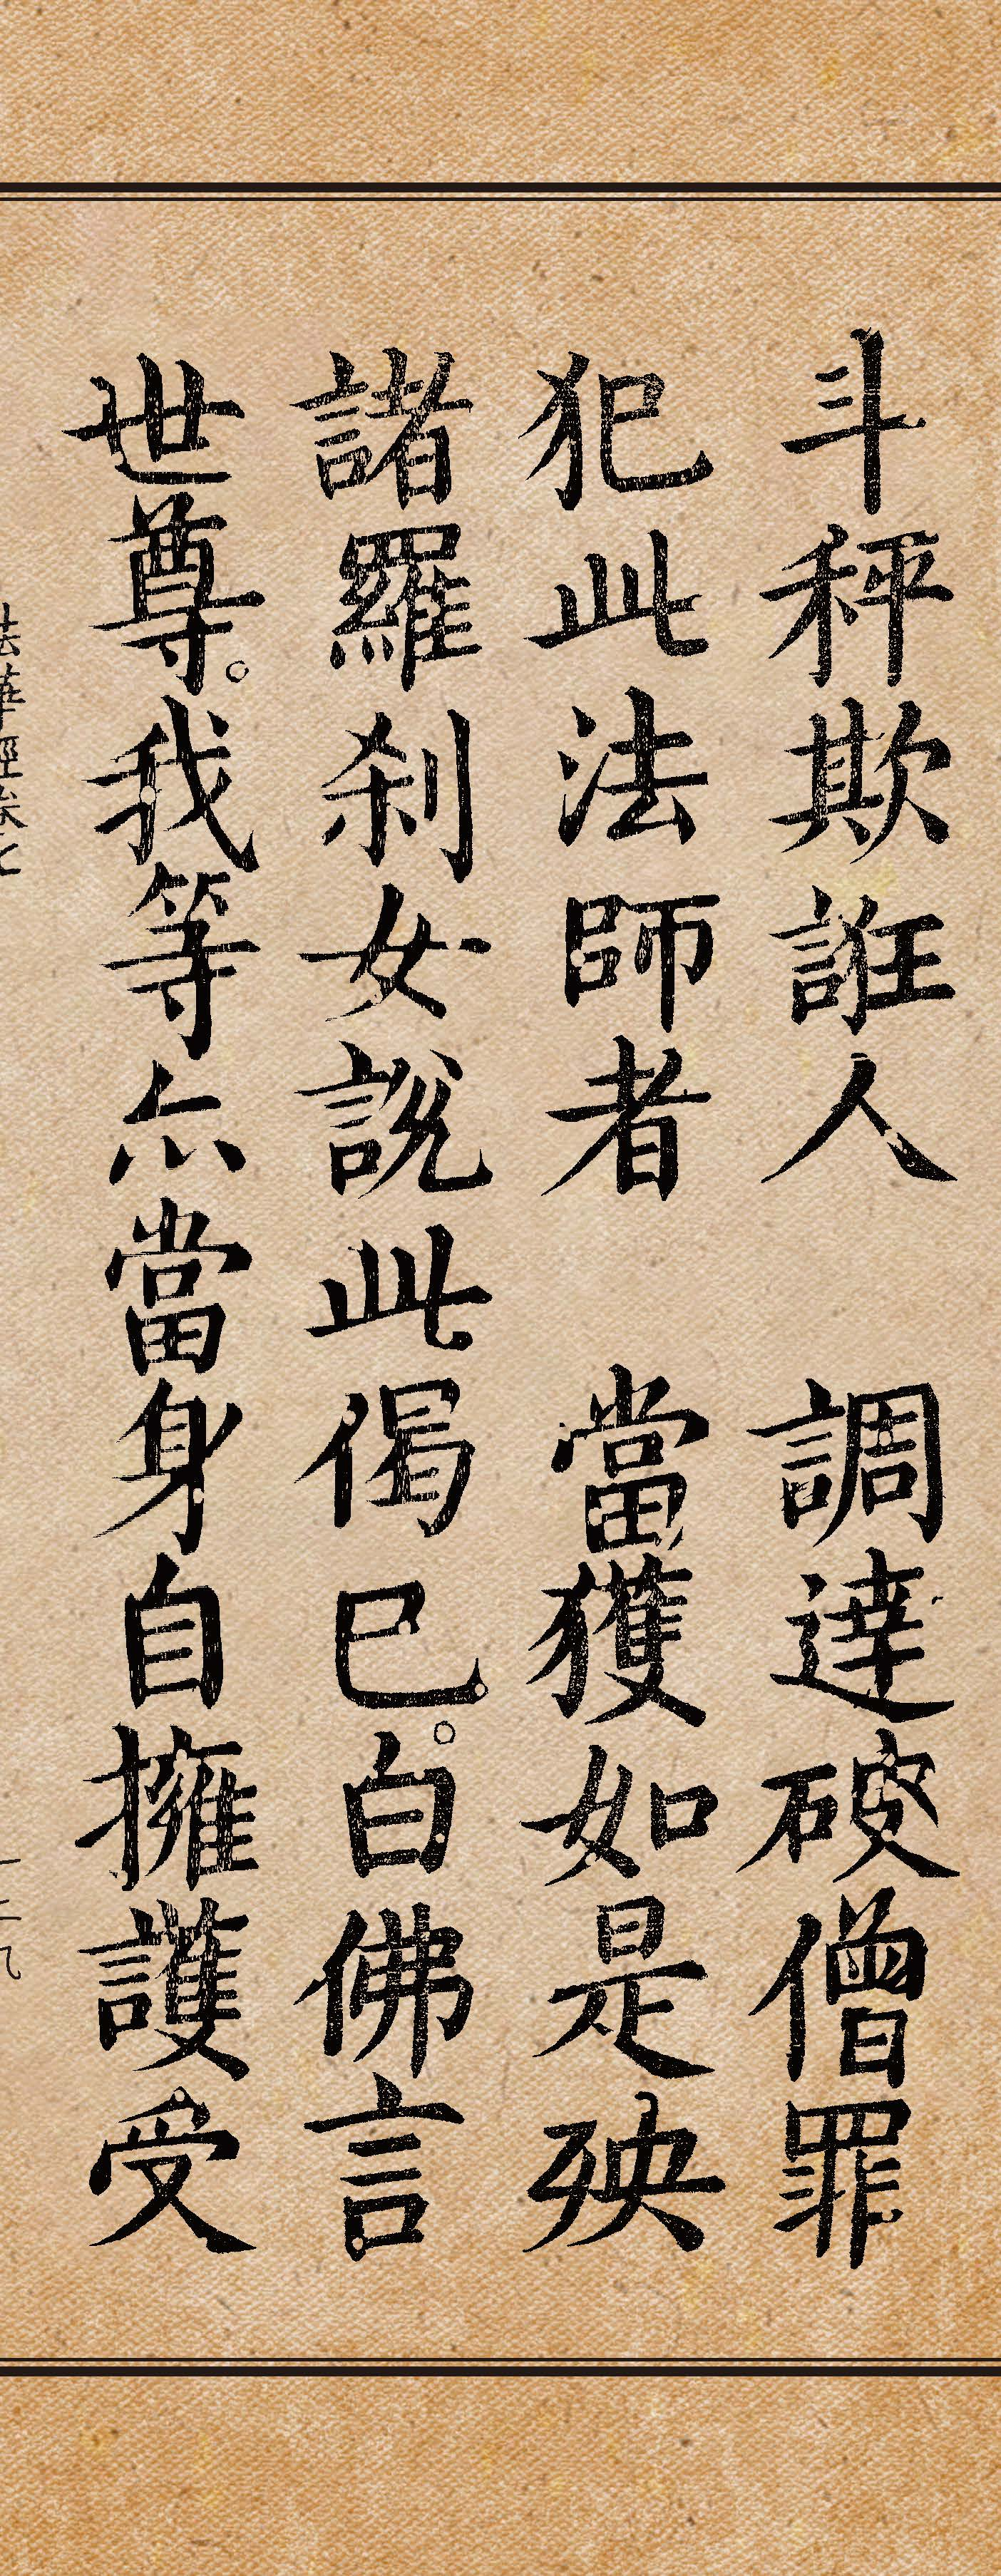 斗秤欺誑人　調達破僧罪
犯此法師者　當獲如是殃
諸羅刹女說此偈已。白佛言
世尊。我等亦當身自擁護受
法華經卷七